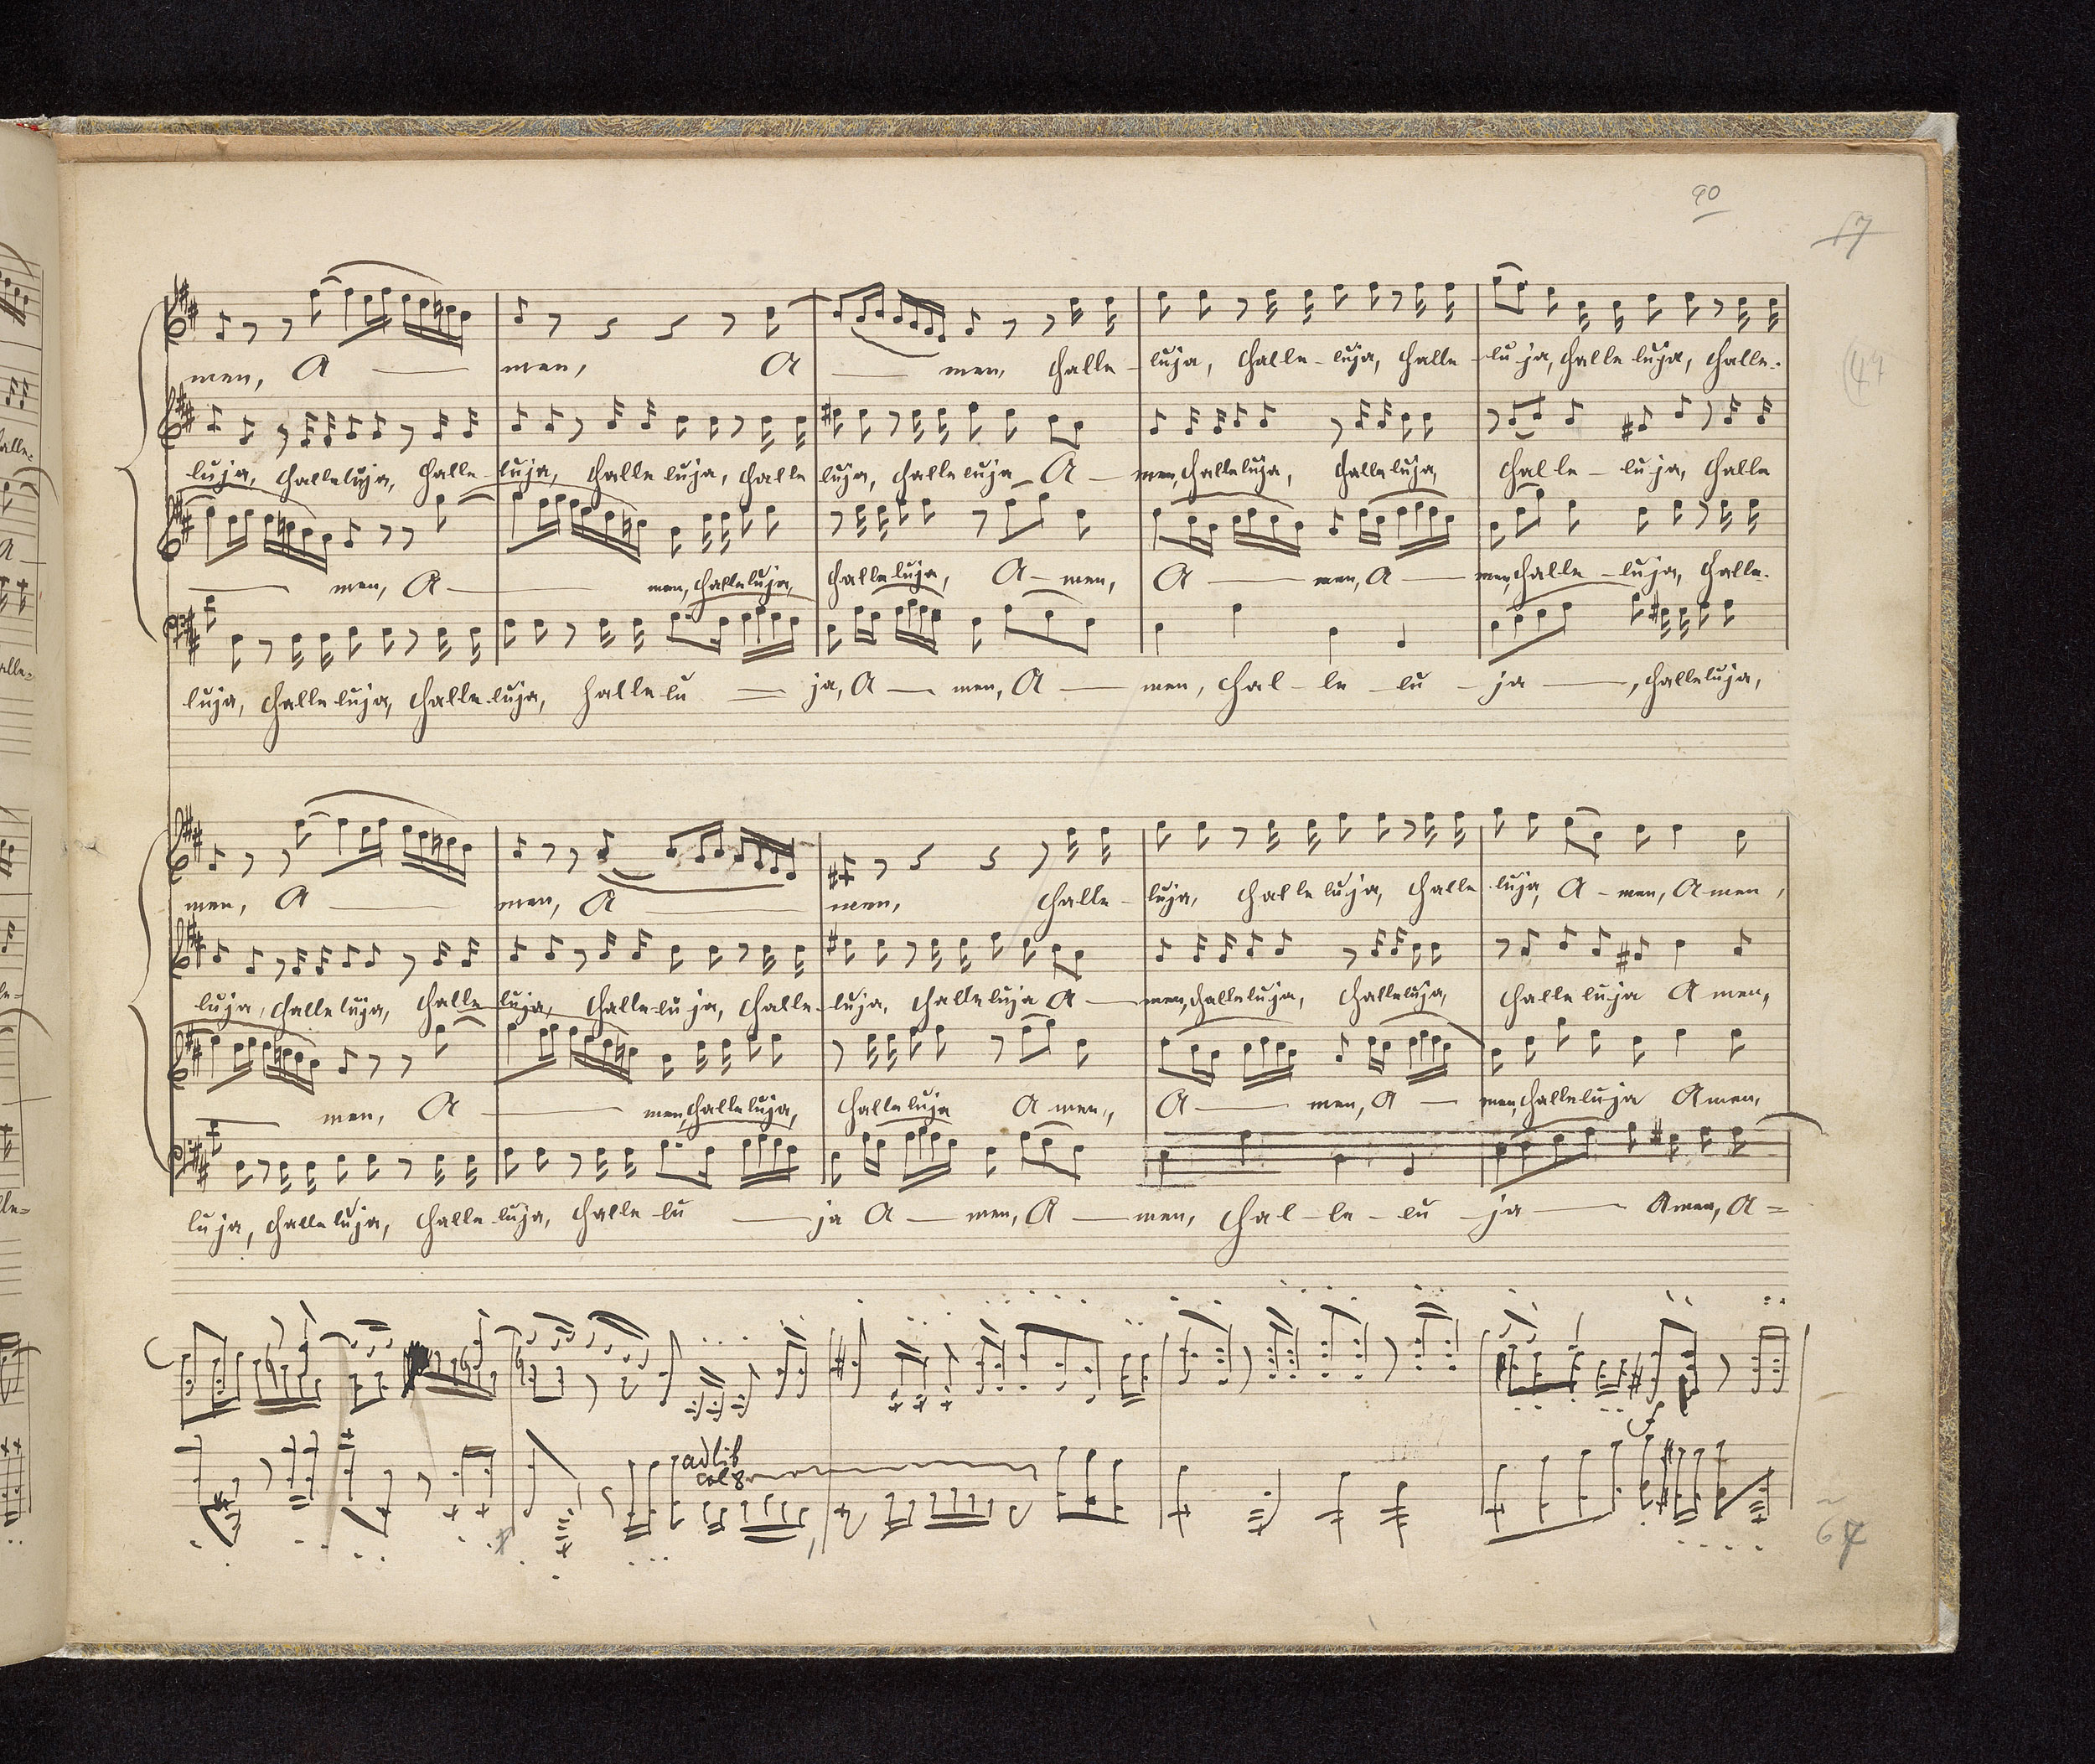 90
17
men, A men, A men, Halle- luja, Halle-luja, Halle-luja, Halleluja, Halle-
(44
luja, Halleluja, Halle-luja, Halleluja, Halle luja, Halleluja A-men, Halleluja, Halleluja, Halle-luja, Halle
men, A men, Halleluja, Halleluja, A-men, A men, A men, Halle-luja, Halle-
luja, Halleluja, Halle-luja, Halle-lu ja, A men, A men, Hal-le-lu-ja, Halleluja,
men, A men, A men, Halle-luja, Halleluja, Halle luja, A-men, Amen,
luja, Halleluja, Halle-luja, Halle-luja, Halle-luja, Halleluja A men, Halleluja, Halleluja, Halleluja Amen,
men, A men, Halleluja, Halleluja Amen, A men, A men, Halleluja Amen,
luja, Halleluja, Halle-luja, Halle-lu ja A men, A men, Hal-le-lu-ja Amen, A=
ad lib
col 8
f
67